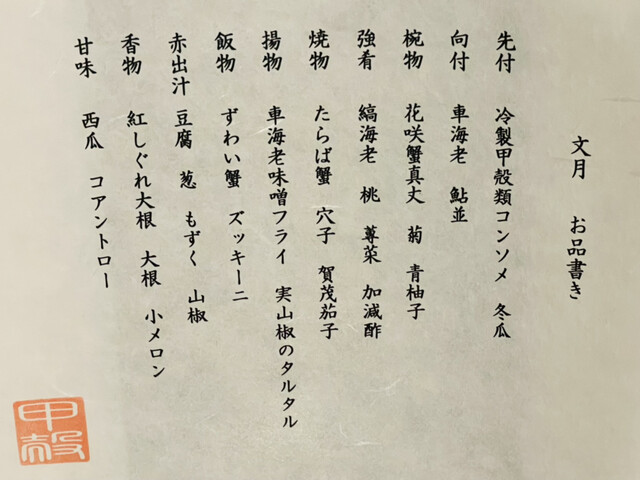 文月　お品書き
先付　冷製甲殻類コンソメ　冬瓜
向付　車海老　鮎並
椀物　花咲蟹真丈　菊　青柚子
強肴　縞海老　桃　蓴菜　加減酢
焼物　たらば蟹　穴子　賀茂茄子
揚物　車海老味噌フライ　実山椒のタルタル
飯物　ずわい蟹　ズッキーニ
赤出汁　豆腐　葱　もずく　山椒
香物　紅しぐれ大根　大根　小メロン
甘味　西瓜　コアントロー
甲殻